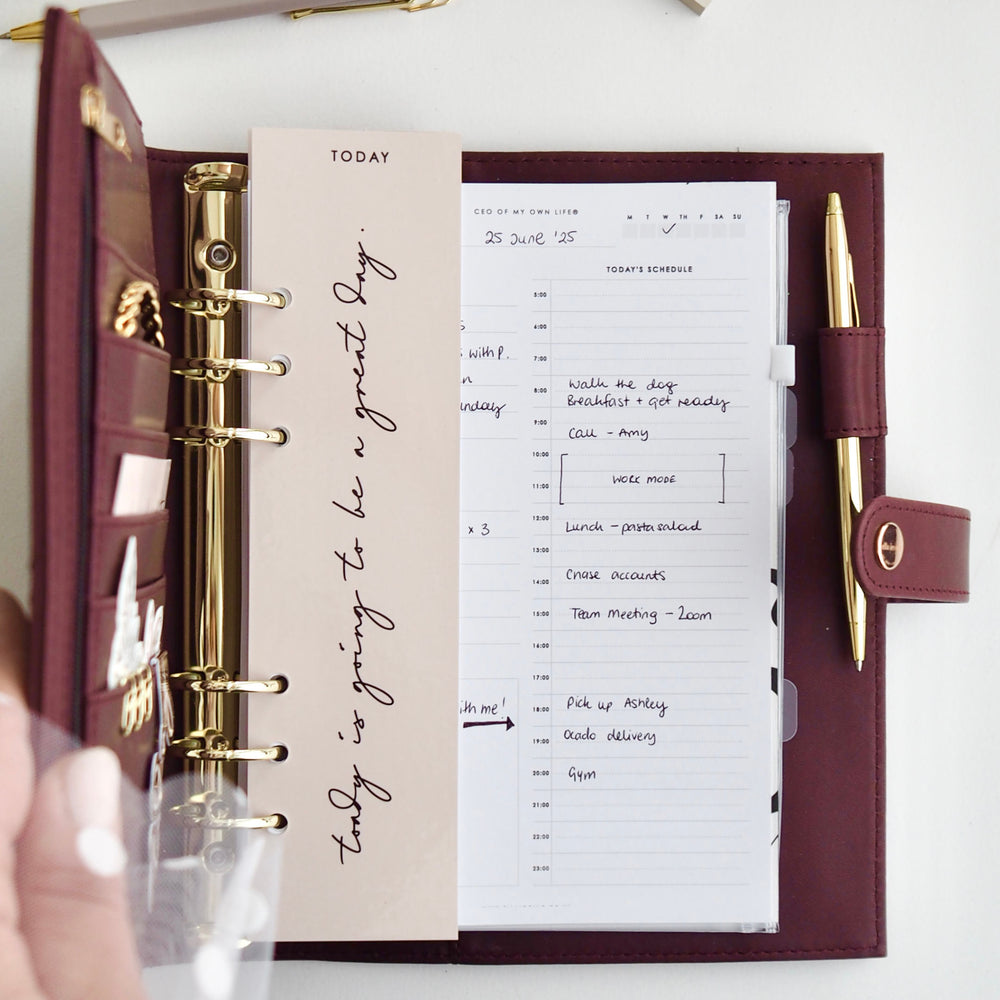 TODAY
today is going to be a great day.
CEO OF MY OWN LIFE®
M T W TH F SA SU
25 June '25
TODAY'S SCHEDULE
5:00
6:00
with P.
7:00
8:00 Walk the dog
Breakfast + get ready
9:00 Call - Amy
10:00
WORK MODE
11:00
12:00 Lunch - pasta salad
x 3
13:00
14:00 Chase accounts
15:00 Team meeting - Zoom
16:00
17:00
18:00 Pick up Ashley
with me!
19:00 Ocado delivery
20:00 Gym
21:00
22:00
23:00